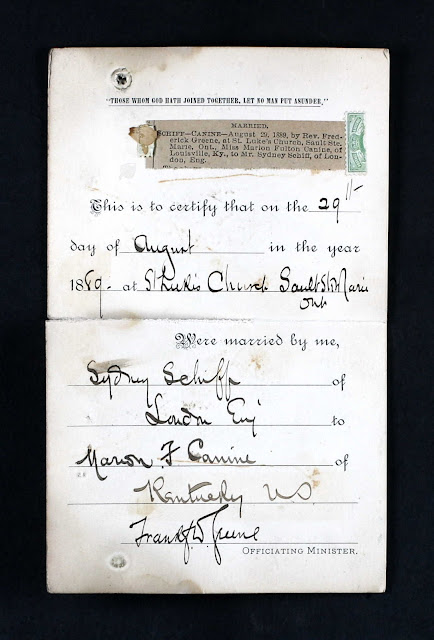 "THOSE WHOM GOD HATH JOINED TOGETHER, LET NO MAN PUT ASUNDER."
MARRIED.
SCHIFF—CANINE—August 29, 1889, by Rev. Fred-
erick Greene, at St. Luke's Church, Sault Ste.
Marie, Ont., Miss Marion Fulton Canine, of
Louisville, Ky., to Mr. Sydney Schiff, of Lon-
don, Eng.
This is to certify that on the 29th
day of August in the year
1889- at St Luke's Church Sault Ste Marie
Ont
Were married by me,
Sydney Schiff of
London Eng to
Marion F Canine of
Kentucky US
Greene
OFFICIATING MINISTER.